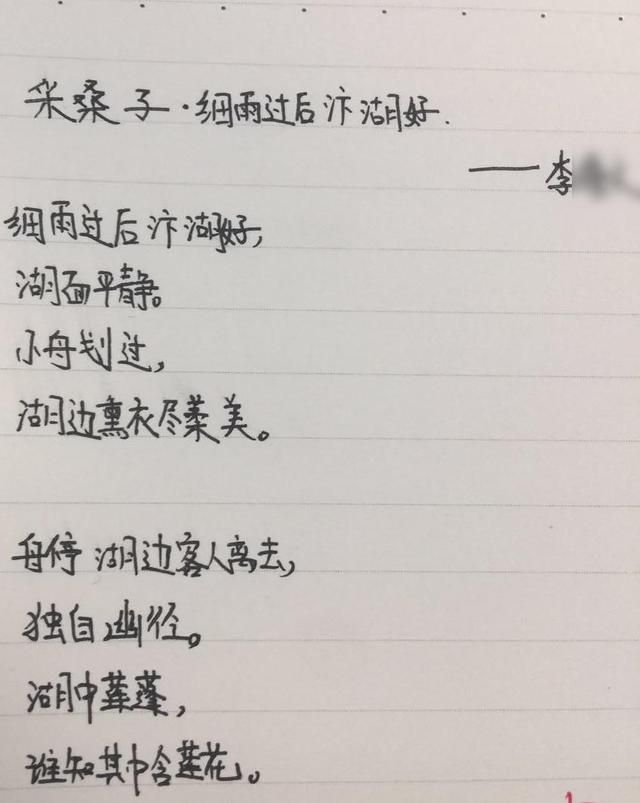 采桑子·细雨过后汴湖好.
——李
细雨过后汴湖好,
湖面平静。
小舟划过,
湖边熏衣尽葇美。
舟停湖边客人离去,
独自幽径。
湖中莲蓬,
谁知其中含莲花。